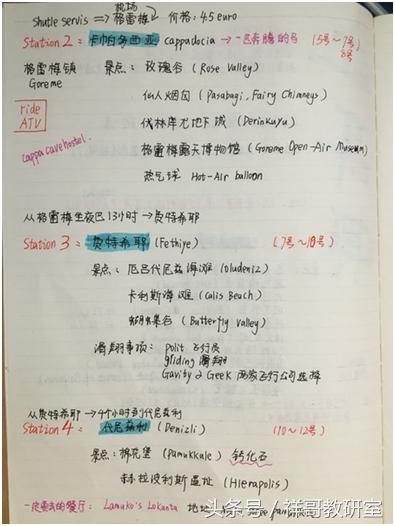 机场
Shutle servis => 格雷梅 价格: 45 euro
Station 2 = 卡帕多西亚 cappadocia → 一匹奔腾的马 (5号~7号
8号
格雷梅镇 景点: 玫瑰谷 (Rose Valley)
Goreme
仙人烟囱 (Pasabagi, Fairy Chimneys)
ride
ATV
代林库尤地下城 (Derinkuyu)
格雷梅露天博物馆 (Goreme Open-Air Museum)
cappa cave hostel.
热气球 Hot-Air balloon
从格雷梅坐夜巴13小时 → 费特希耶
Station 3 = 费特希耶 (Fethiye) (7号~10号)
景点: 厄吕代尼兹海滩 (Oludeniz)
卡利斯海滩 (Calis Beach)
蝴蝶谷 (Butterfly Valley)
滑翔事项: polit 飞行员
gliding 滑翔
Gavity 2 Geek 两家飞行公司选择
从费特希耶 → 4个小时到代尼兹利
Station 4 = 代尼兹利 (Denizli) (10~12号)
景点: 棉花堡 (Pamukkale) 钙化石
赫拉波利斯遗址 (Hierapolis)
一定要去的餐厅: Lamuko's Lokanta 地址
头条号 / 祥哥教研室